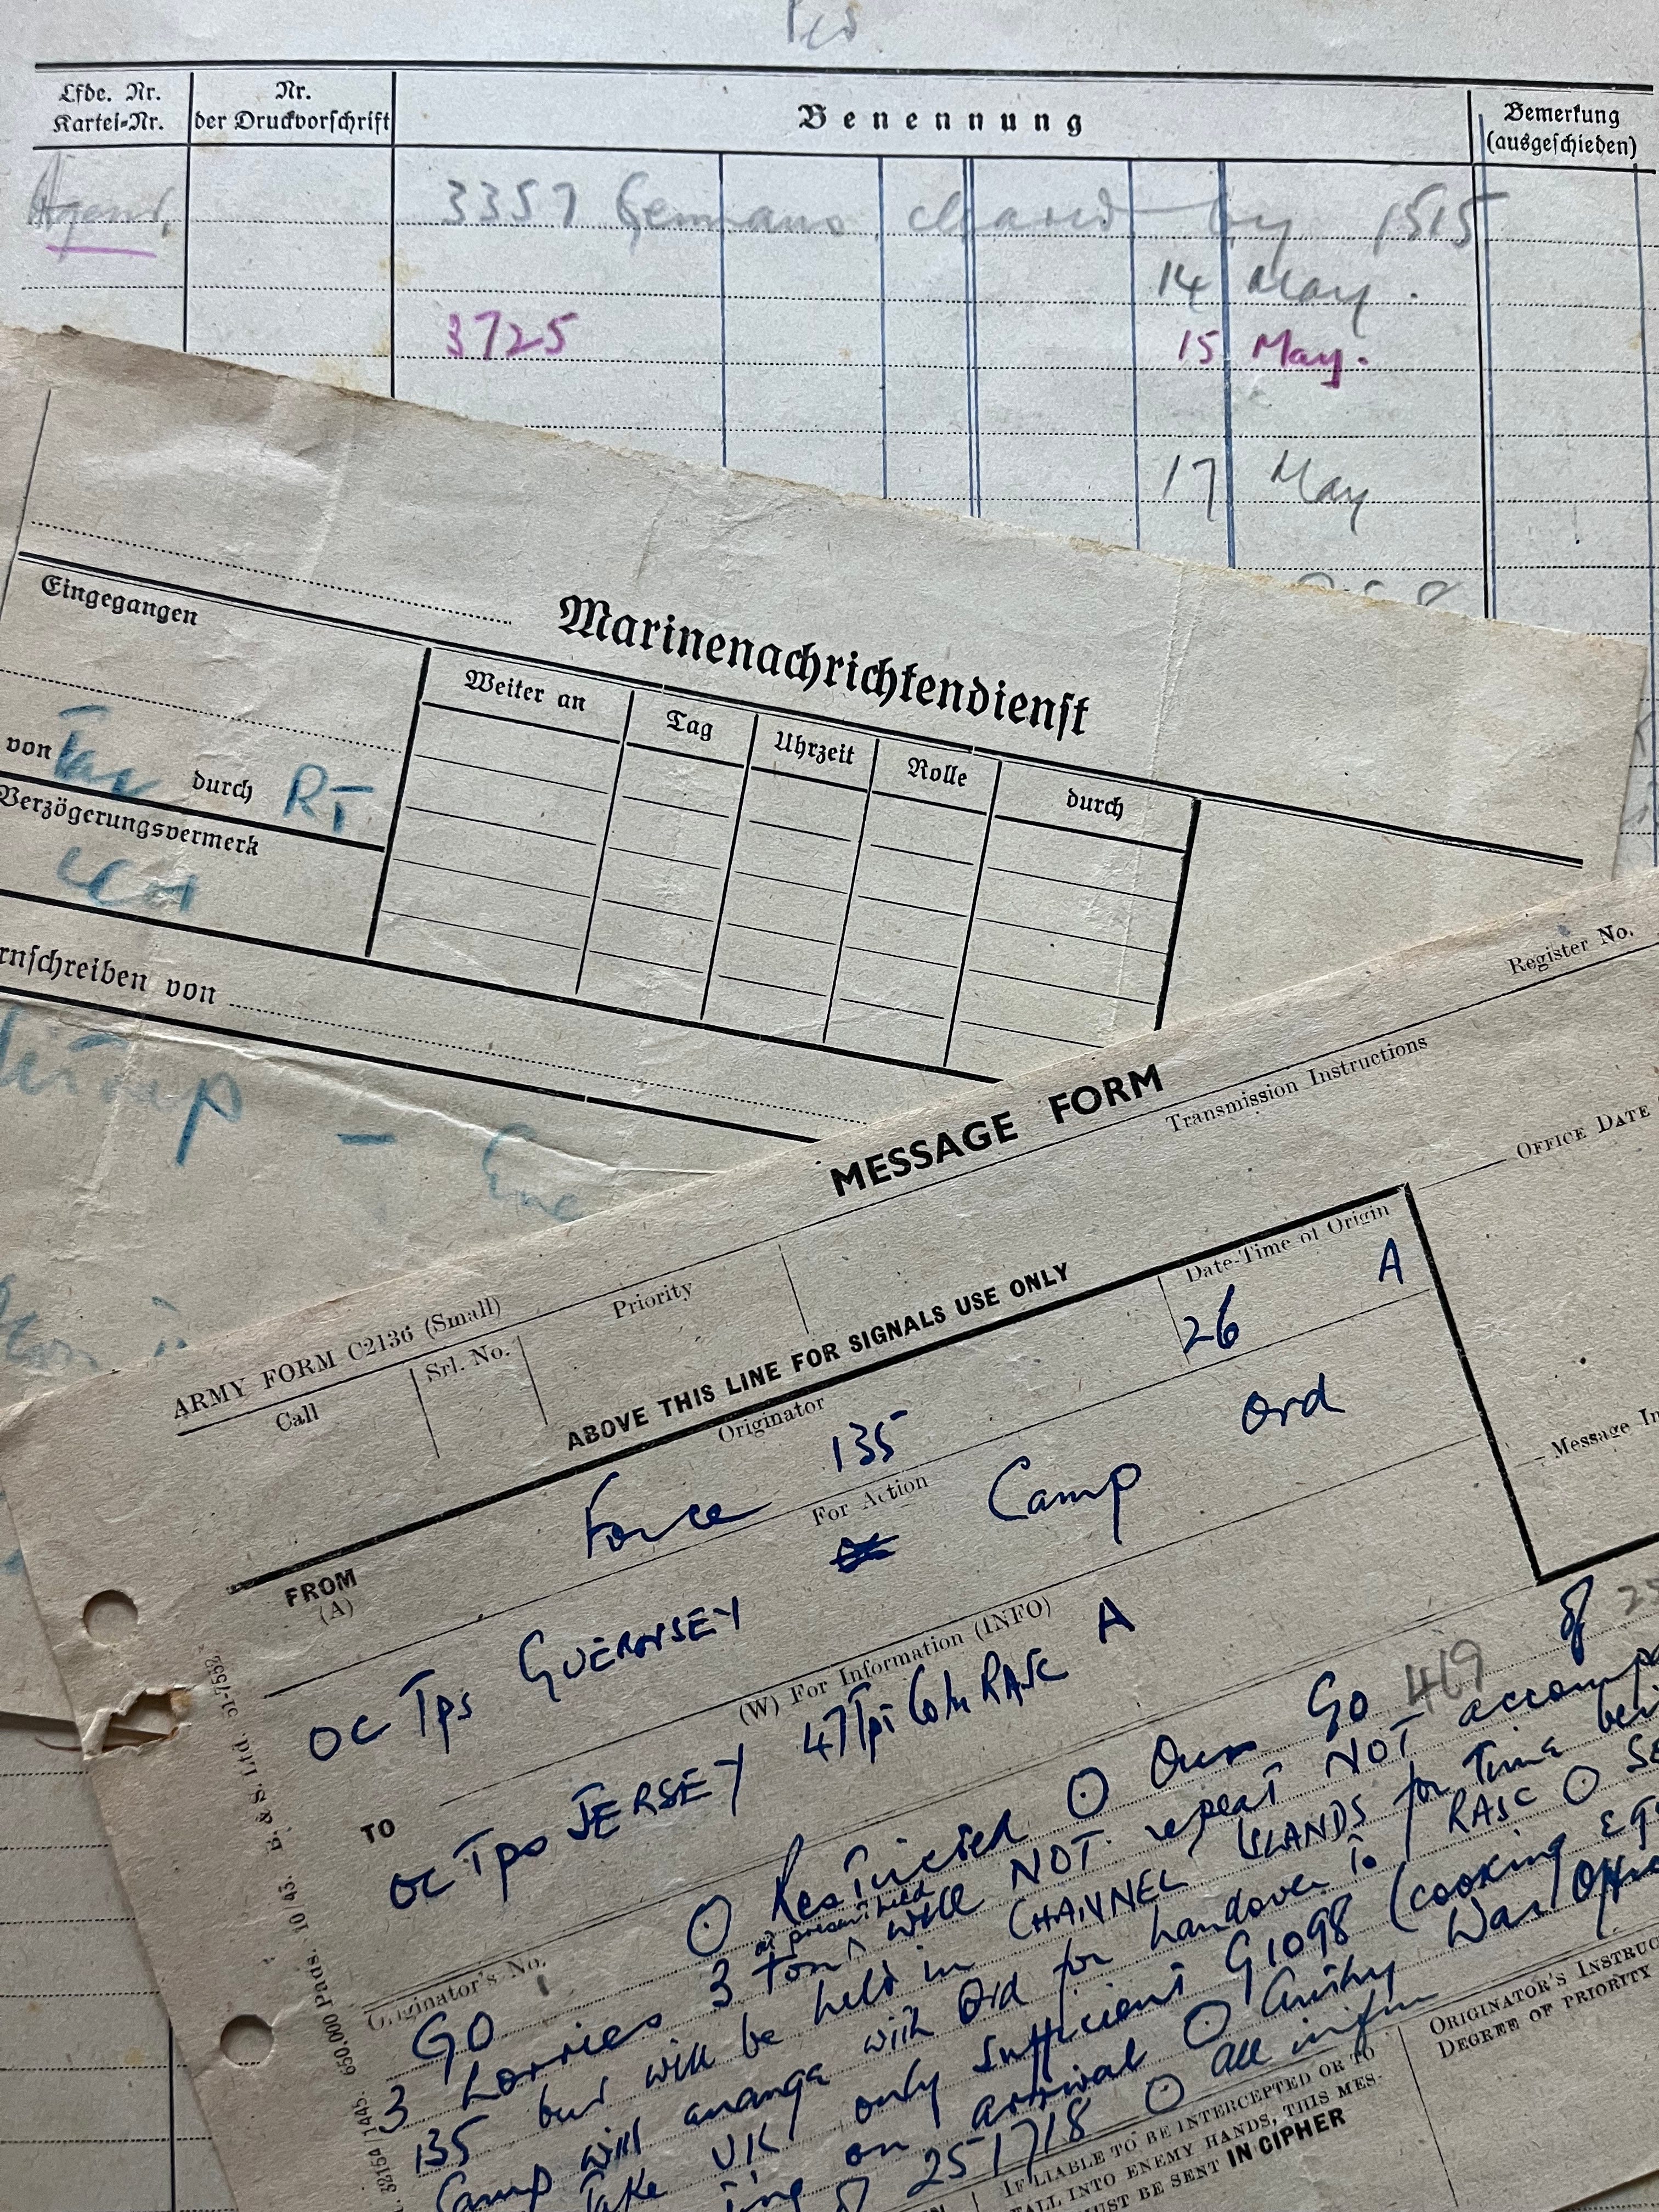 Lfde. Nr.
Kartei-Nr.
Nr.
der Druckvorschrift
Benennung
Bemerkung
(ausgeschieden)
3357 Germans cleared by 1515
14 May.
3725 15 May.
17 May
Marinenachrichtendienst
Eingegangen
von durch RT
Verzögerungsvermerk
Weiter an
Tag
Uhrzeit
Rolle
durch
rnschreiben von
MESSAGE FORM
Register No.
ARMY FORM C2136 (Small)
Call
Srl. No.
Priority
Transmission Instructions
ABOVE THIS LINE FOR SIGNALS USE ONLY
OFFICE DATE
FROM
(A)
Originator
Date-Time of Origin
Force 135
26 A
For Action
Camp Ord
OC Tps GUERNSEY
(W) For Information (INFO)
Message In
TO
OC Tps JERSEY 47 Tpt Coln RASC A
Originator's No.
GO O Restricted O Our GO 419 of 25
at present held
3 Lorries 3 ton will NOT repeat NOT accompa
135 but will be held in CHANNEL ISLANDS for time bei
Camp will arrange with Ord for handover to RASC O
Take UK only sufficient G1098 (cooking
ing on arrival O Auth War Off
of 251718 O all infm
IF LIABLE TO BE INTERCEPTED OR TO
FALL INTO ENEMY HANDS, THIS MES-
UST BE SENT IN CIPHER
ORIGINATOR'S INSTRUC
DEGREE OF PRIORITY
32154 1445. 650,000 Pads. 10/43. B. & S. Ltd. 51-7552